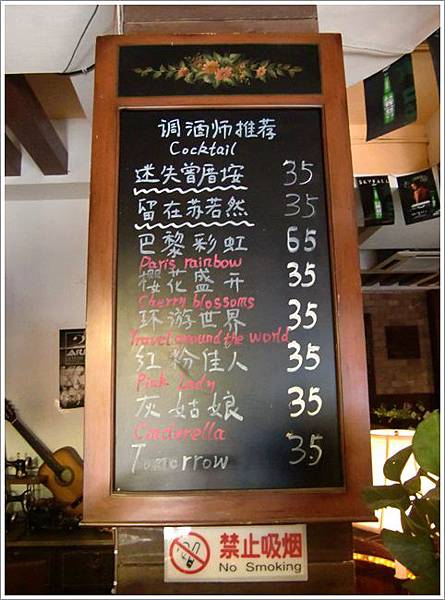 调酒师推荐
Cocktail
迷失曾厝垵 35
留在苏若然 35
巴黎彩虹 65
Paris rainbow
樱花盛开 35
Cherry blossoms
环游世界 35
Travel around the world
红粉佳人 35
Pink Lady
灰姑娘 35
Cinderella
Tomorrow 35
禁止吸烟
No Smoking